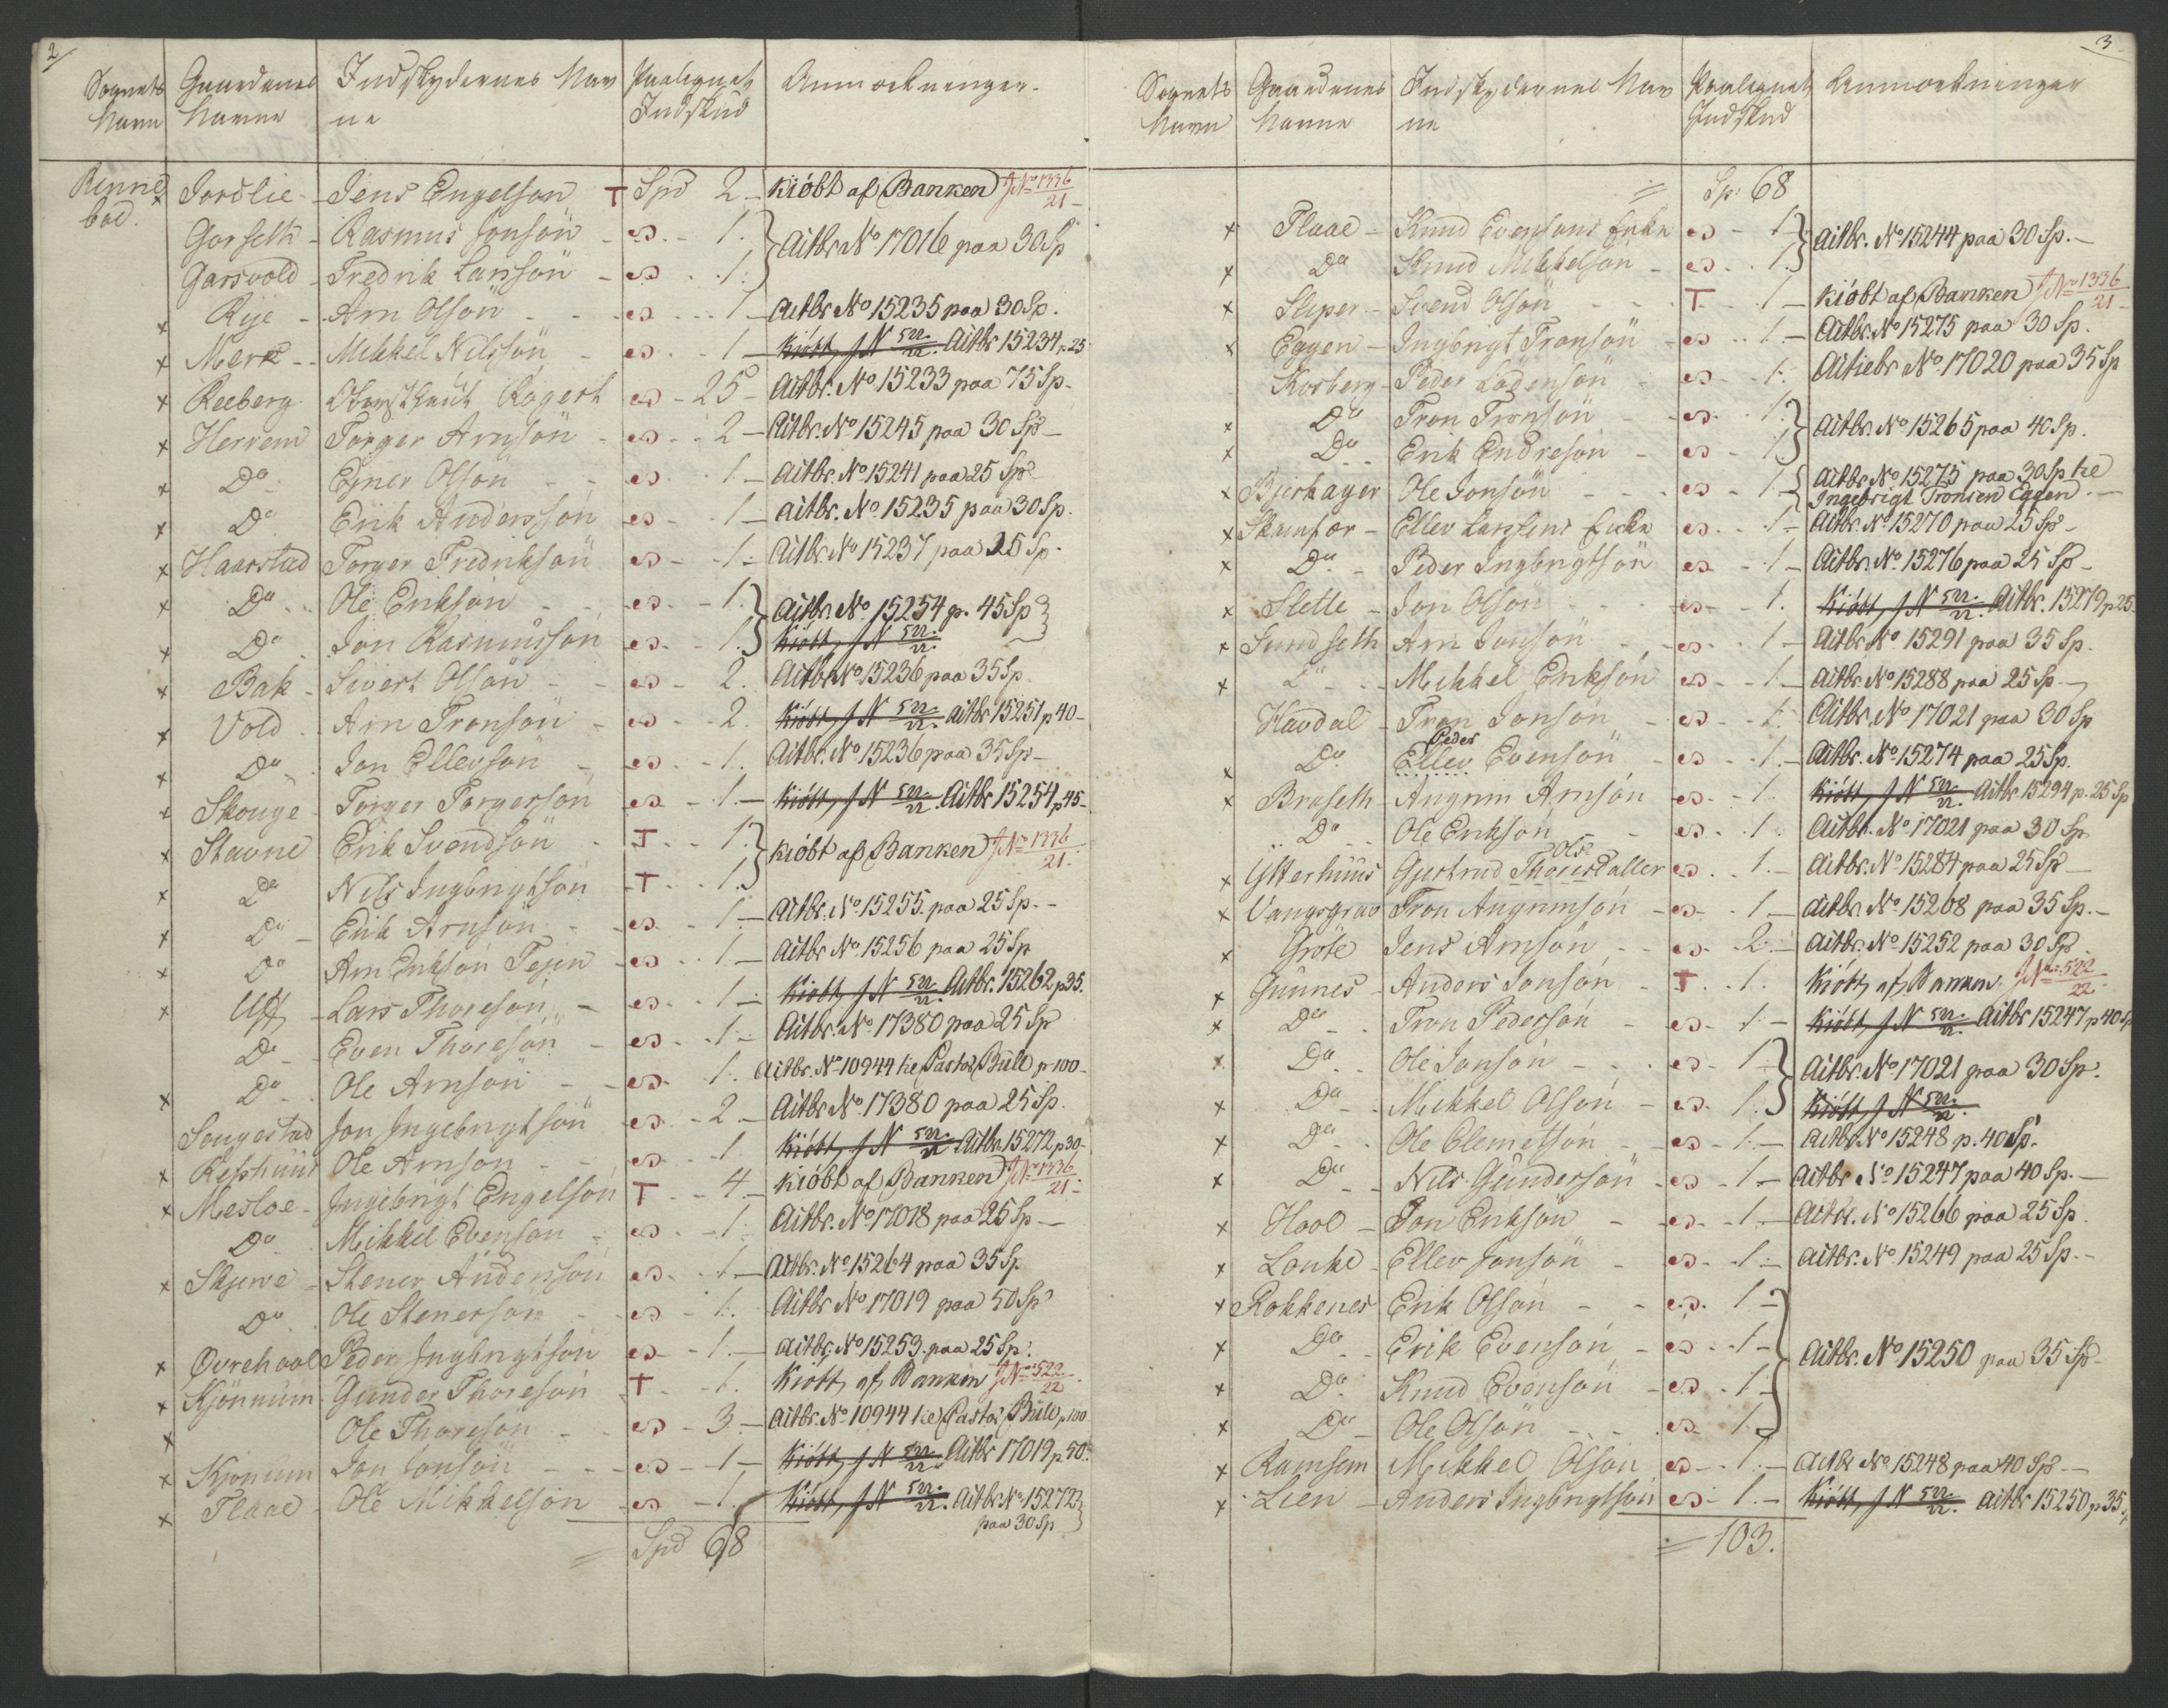 2
Sognets Gaardenes Indskydernes Nav Paalignet Anmærkninger.
Navn Navne ne Indskud
Rennebod.
x Jordlie - Jens Engelson T Spd 2 - Kiöbt af Banken JNo 1336/21 -
Gorseth - Rasmus Jonsön - 1. } Actbr No 17016 paa 30 Sp
Garsvold - Fredrik Larsön - 1.
x Rise - Arn Olsön - 1 - Actbr No 15235 paa 30 Sp.
x Merk - Mikkel Nilssön - 1 - Kiöbt, J N 522/22. Actbr 15234 p 25
x Reeberg Oberstlieut Rogert - 25 - Actbr. No 15233 paa 75 Sp.
x Herrem Torger Arnsön - 2 - Actbr. No 15245 paa 30 Sp -
x Do Ejner Olsön - 1 - Actbr. No 15241 paa 25 Sp
x Do Erik Anderssön - 1 - Actbr. No 15235 paa 30 Sp.
x Haarstad Torger Fredriksön - 1 - Actbr No 15237 paa 25 Sp.
x Do Ole Eriksön - 1. } Actbr. No 15254 p. 45 Sp
x Do Jon Rasmussön - 1. Kiöbt, J N 522/22.
x Bak - Sivert Olsön - 2. Actbr No 15236 paa 35 Sp
x Vold - Arn Tronsön - 2. Kiöbt, J N 522/22. Actbr 15251 p 40 -
x Do Jon Ellevsön - 1. Actbr. No 15236 paa 35 Sp -
x Skouge - Torger Torgersön - 1. - Kiöbt, J N 522/22. Actbr 15254 p 45 -
x Stavne Erik Svendsön T - 1. } Kiöbt af Banken JNo 1336/21.
x Do Nils Ingbrigtsön T - 1.
x Do - Erik Arnsön - 1 - Actbr. No 15255. paa 25 Sp. -
x Do Arn Eriksön Tejen - 1 - Actbr No 15256 paa 25 Sp
x Uff - Lars Thoresön - 1 - Kiöbt, J N 522/22. Actbr. 15262 p 35.
Do - Even Thoresön - 1 - Actbr. No 17380 paa 25 Sp
x Do Ole Arnsön - 1. Actbr. No 10944 he Pastor Bull p 100 -
Sougestad Jon Ingebrigtsön - 2 - Actbr No 17380 paa 25 Sp.
x Reshuus Ole Arnsön - 1 Kiöbt, J N 522/22 Actbr. 15272 p 30 -
x Mesloe - Ingebrigt Engelsön T - 4. - Kiöbt af Banken JNo 1336/21 -
Do Mikkel Evensön - 1. Actbr. No 17018 paa 25 Sp -
x Skjerve - Stener Andersön - 1 - Actbr. No 15264 paa 35 Sp
Do Ole Stenersön - 1. Actbr No 17019 paa 50 Sp
x Ovrehool Peder Ingbrigtsön - 1. - Actbr. No 15253. paa 25 Sp.
x Kjönnum Gunder Thoresön T - 1. Kiöbt, af Banken JNo 522/22
x Ole Thoresön - 3 - Actbr. No 10944 he Pastor Bull p 100
x Kjönum Jon Jonsön - 1 - Kiöbt, J N 522/22 Actbr 17019 p 50.
x Flaae - Ole Mikkelsön - 1. Kiöbt, J N 522/22. Actbr No 15272
paa 30 Sp
Spd 68
3
Sognets Gaardenes Indskydernes Nav Paalignet Anmærkninger
Navn Navne ne Indskud
Sp. 68
x Flaae - Knud Evensöns Enke - 1 } Actbr. No 15244 paa 30 Sp. -
x Do Knud Mikkelsön - 1.
x Sluper - Svend Olsön T - 1 - Kiöbt af Banken JNo 1336/21 -
x Eggen - Ingbrigt Tronsön - 1 - Actbr. No 15275 paa 30 Sp.
Korsberg - Peder Lodensön - 1. Actiebr No 17020 paa 35 Sp
x Do Tron Tronsön - 1. } Actbr. No 15265 paa 40 Sp.
x Do Erik Endresön - 1.
x Bjerkager Ole Jonsön - 1 - { Actbr No 15275 paa 30 Sp he
Ingebrigt Tronsen Eggen. -
x Skamfor - Ellev Larssens Enke - 1 - Actbr No 15270 paa 25 Sp -
x Do - Peder Ingbrigtsön - 1 - Actbr. No 15276 paa 25 Sp -
x Slette - Jon Olsön - 1. Kiöbt, J N 522/22. Actbr. 15279 p 25
x Sundseth Arn Jonsön - 1 - Actbr No 15291 paa 35 Sp.
x Do - Mikkel Eriksön - 1 - Actbr. No 15288 paa 25 Sp -
Havdal - Tron Jonsön - 1. Actbr. No 17021 paa 30 Sp
Peder
x Do Ellev Evensön - 1. - Actbr. No 15274 paa 25 Sp.
x Bruseth - Angrim Arnsön - 1. Kiöbt, J N 522/22. Actbr 15294 p. 25 Sp
Do Ole Eriksön - 1. Actbr. No 17021 paa 30 Sp
Ols
x Ytterhuus Gjertrud Thoresdatter - 1. - Actbr. No 15284 paa 25 Sp -
x Vangsgrav Tron Angrimsön - 1. - Actbr. No 15268 paa 35 Sp. -
x Gröte Jens Arnsön - 2. - Actbr. No 15252 paa 30 Sp
x Gunnes - Anders Jonsön T - 1. Kiöbt, af, Banken. JNo 522/22.
x Do - Tron Pedersön - 1. - Kiöbt, J N 522/22. Actbr 15247 p 40 Sp
x Do Ole Jonsön - 1. } Actbr. No 17021 paa 30 Sp.
x Do - Mikkel Olsön - 1. Kiöbt, J N 522/22.
x Do - Ole Clemetsön - 1. - Actbr No 15248 p. 40 Sp.
x Do - Nils Gundersön - 1. - Actbr No 15247 paa 40 Sp. -
x Hool - Jon Eriksön - 1. - Actbr. No 15266 paa 25 Sp
x Louke - Ellev Jonsön - 1. - Actbr. No 15249 paa 25 Sp. -
x Rokkenes Erik Olsön - 1 -
x Do Erik Evensön - 1 - } Actbr. No 15250 paa 35 Sp -
x Do Knud Evensön - 1 -
x Do - Ole Olsön - 1.
x Ramsem Mikkel Olsön - 1. - Actbr No 15248 paa 40 Sp -
x Lien - Anders Ingbrigtsön - 1. - Kiöbt, J N 522/22. Actbr 15250 p 35
103.